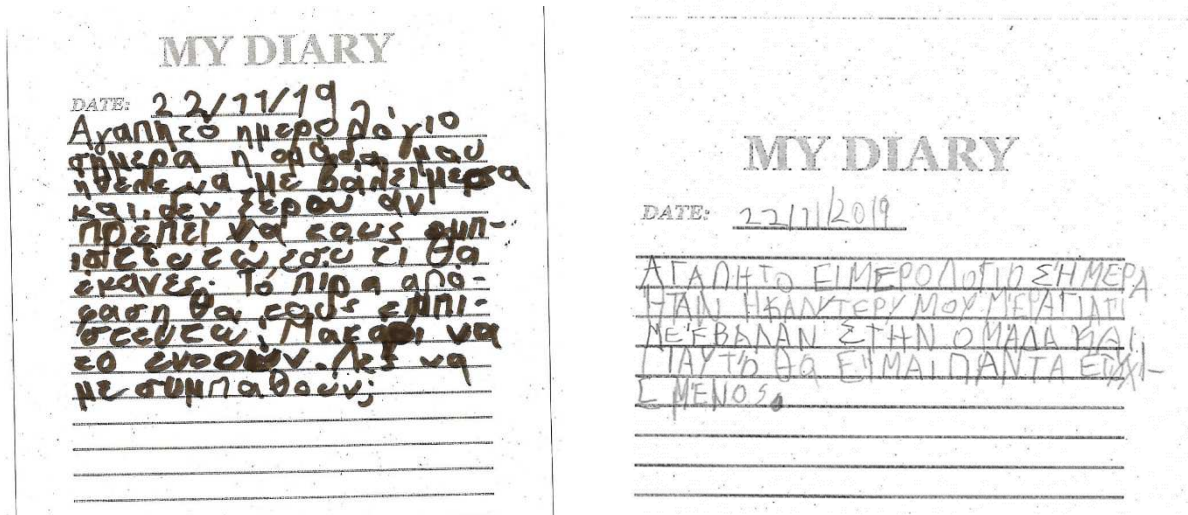 MY DIARY
DATE: 22/11/19
Αγαπητό ημερολόγιο
σήμερα η ομάδα μου
ήθελε να με βάλει μέσα
και δεν ξέρου αν
πρέπει να τους εμπ-
ιστευτώ, εσύ τι θα
έκανες. Τό πίρα από-
φαση θα τους εμπι-
στευτώ. Μακαρι να
το ενοούν. Λες να
με συμπαθούν;
MY DIARY
DATE: 22/11/2019
ΑΓΑΠΗΤΟ ΕΙΜΕΡΟΛΟΓΙΟ ΣΉΜΕΡΑ
ΗΤΑΝ Η ΚΑΛΥΤΕΡΥ ΜΟΥ ΜΈΡΑ ΓΙΑΤΙ
ΜΕ ΈΒΑΛΑΝ ΣΤΗΝ ΟΜΑΔΑ ΚΑΙ
ΓΙΑΥΤΌ ΘΑ ΕΥΜΑΙ ΠΑΝΤΑ ΕΥΤΙΧΙ-
ΣΜΈΝΟS.